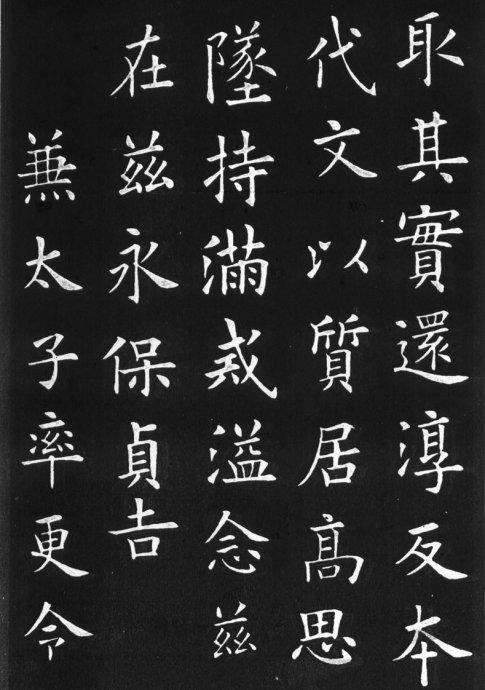 取其實還淳反本
代文以質居高思
墜持滿戒溢念茲
在茲永保貞吉
兼太子率更令